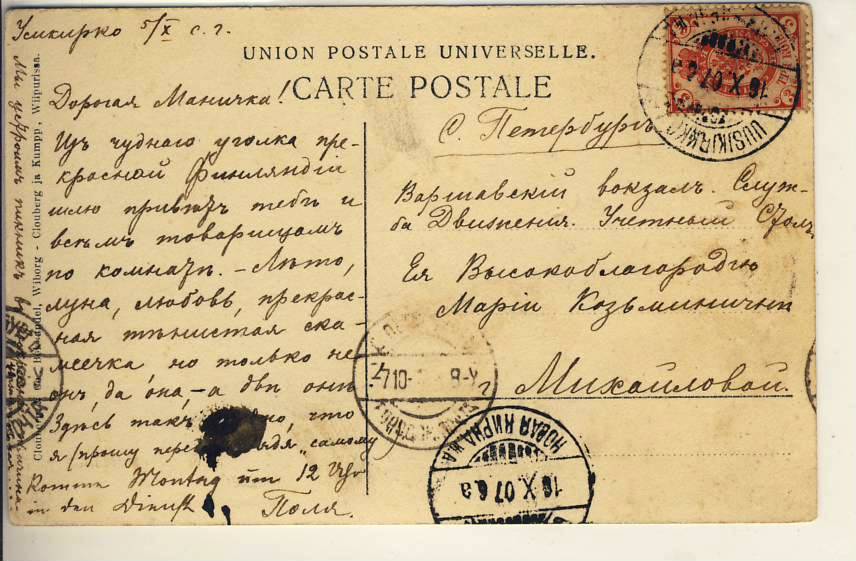 Усикирко 5/X с. г.
UNION POSTALE UNIVERSELLE.
CARTE POSTALE
Дорогая Маничка!
Изъ чуднаго уголка пре-
красной Финляндіи
шлю привѣтъ тебѣ и
всѣмъ товарищамъ
по комнатѣ. - Лѣто,
луна, любовь, прекрас-
ная тѣнистая ска-
меечка но только не
онъ, да она, - а двѣ онѣ
Здѣсь такъ что
я (прошу самому
Komme Montag um 12 Uhr
in den Dienst
Поля.
Мы устроимъ пикникъ
Wiborg - Clouberg ja Kumpp., Wiipurissa.
С. Петербургъ
Варшавскій вокзалъ. Служ-
ба Движенія. Учетный Столъ
Ея Высокоблагородію
Маріи Козьминичнѣ
Михайловой.
UUSIKIRKKO
16.X.07
7 10
НОВАЯ КИРКА
16.X.07.6a